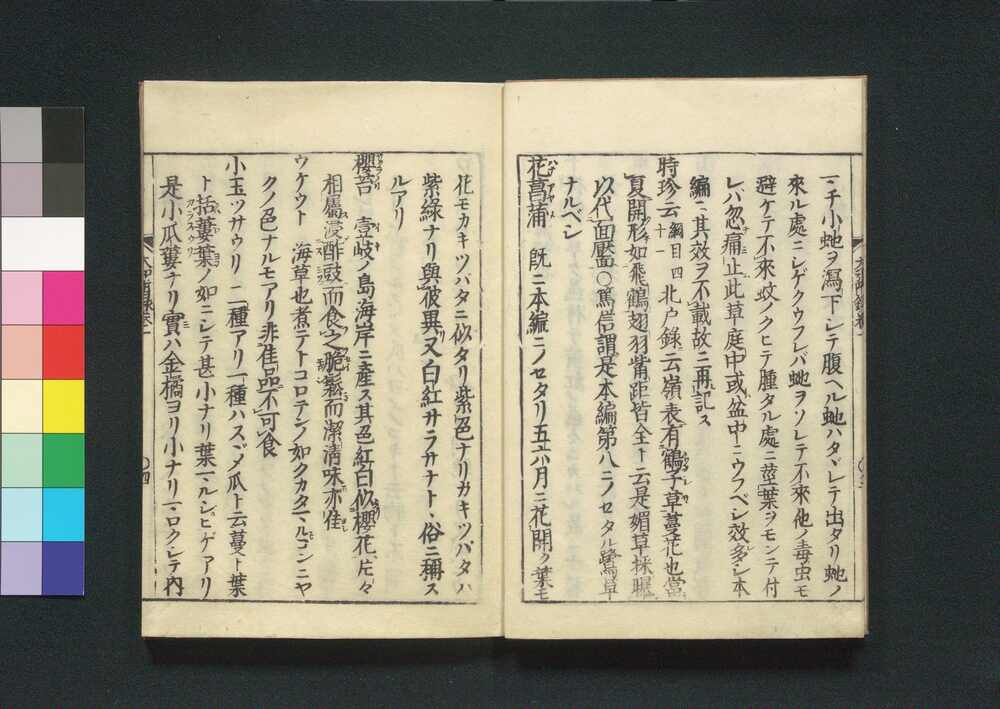 一チ小虵ヲ瀉下シテ腹ヘル虵ハタヾレテ出タリ虵ノ
來ル處ニシゲクウフレバ虵ヲソレテ不來他ノ毒虫モ
避ケテ不來蚊ノクヒテ腫タル處ニ莖葉ヲモンテ付
レバ忽痛止此草庭中或盆中ニウフベシ效多シ本
編ニ其效ヲ不載故ニ再記ス
時珍云綱目四十一北戸錄云嶺表有鶴子草蔓花也當
夏開形如飛鶴翅羽觜距皆全ト云是媚草採曝
以代面靨○篤信謂是本編第八ニノセタル鷺草
ナルベシ
花菖蒲 既ニ本編ニノセタリ五六月ニ花開ク葉モ
花モカキツバタニ似タリ紫色ナリカキツバタハ
紫綠ナリ與彼異リ又白紅サラサナト、俗ニ稱ス
ルアリ
櫻苔 壹岐ノ島海岸ニ産ス其色紅白似櫻花片々
相屬浸酢豉而食之脆鬆而潔清味亦佳
ウケウト 海草也煮テトコロテンノ如クカタマルコンニヤ
クノ色ナルモアリ非佳品不可食
小玉ツサウリ 二種アリ一種ハスヾメ瓜ト云蔓ト葉
ト括蔞葉ノ如ニシテ甚小ナリ葉マルシヒゲアリ
是小瓜蔞ナリ實ハ金橘ヨリ小ナリマロクシテ内